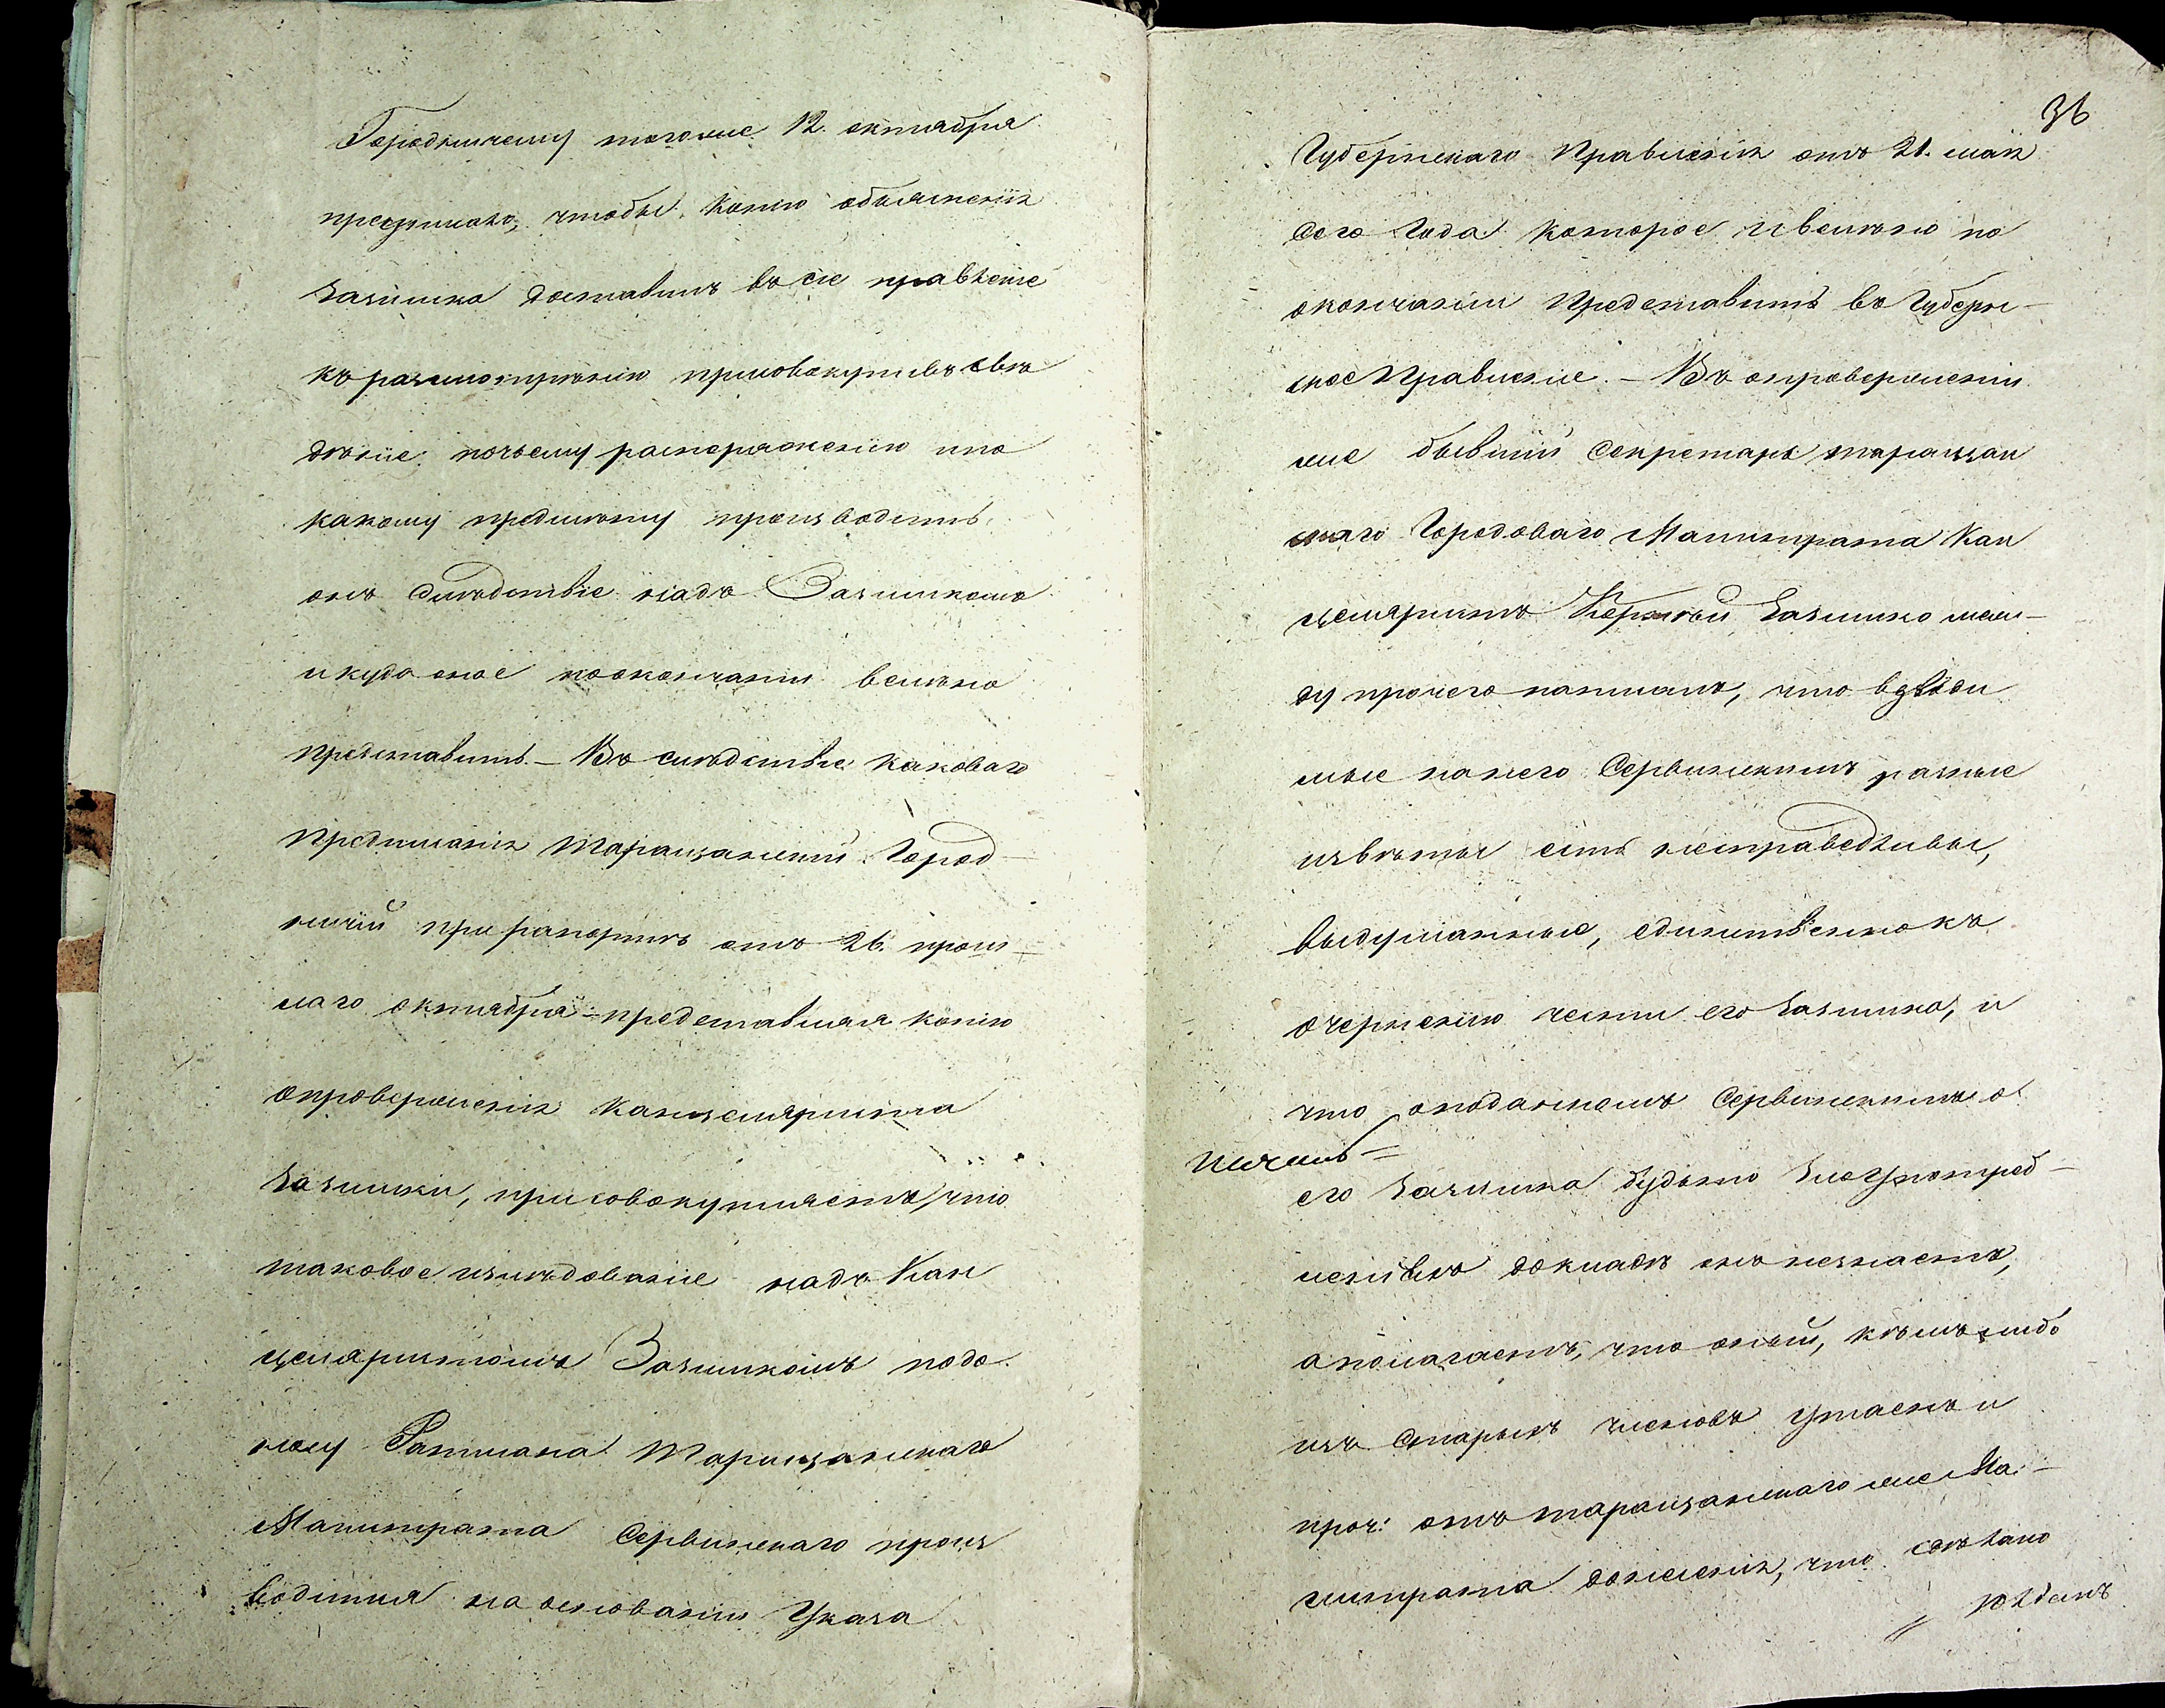 Городничему тогоже 12. октября
предписано, чтобы копію объясненія
Зазимка доставилъ въ сіе правленіе
къ разсмотрѣнію присовокупивъ свѣ
дѣніе; почьему распоряженію ипо
какому предмѣту производитъ
онъ слѣдствіе надъ Зазимкомъ
и куда оное поокончаніи велѣно
представить. – Въ слѣдствіе каковаго
предписанія Таращанскій Город–
ничій при рапортѣ отъ 26. прош–
лаго октября – представляя копію
опроверженія Канцеляриста
Зазимки, присовокупляетъ, что
таковое изслѣдованіе надъ Кан
целяристомъ Зазимкомъ подо
носу Ратмана Таращанскаго
Магистрата Сервинскаго произ
водится на основаніи Указа
36
Губернскаго Правленія отъ 21. мая
сего года которое ивелѣно по
окончаніи представить въ Губерн–
ское Правленіе. – Въ опроверженіи
же бывшій Секретарь таращан
скаго Городоваго Магистрата Кан
целяристъ Зазимко меж–
ду прочего написалъ, что вдѣди
мые нанего Сервинскимъ разные
извѣты есть несправедливы,
выдуманные, единственнокъ
очерненію чести его Зазимка, и
что оподанномъ Сервинскимъ о
писмѣ =
его Зазимка будьто Злоупотреб–
леніяхъ докладѣ онъ незнаетъ,
аполагаетъ, что оный, кѣмъ либо
изъ Старыхъ членовъ утаенъ и
проч: отъ таращанскаго же Ма–
гистрата донесенія, что сдѣлано
//